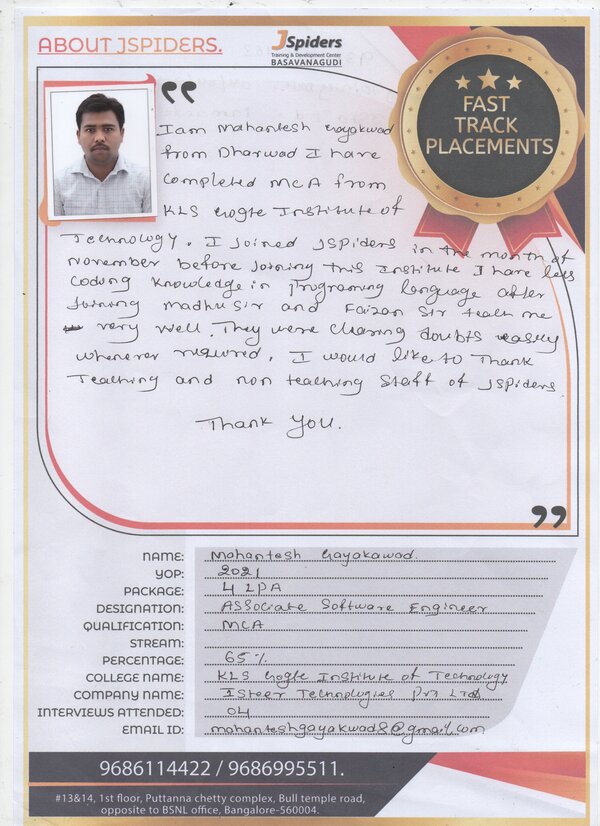 ABOUT JSPIDERS.
JSpiders
Training & Development Center
BASAVANAGUDI
FAST
TRACK
PLACEMENTS
I am Mahantesh Gayakwad
from Dharwad I have
Completed MCA from
KLS Gogte Institute of
Technology. I Joined JSPiders in the month of
November before Joining this Institute I have less
Coding Knowledge in Programing language after
Joining Madhu Sir and Faizan Sir teach me
very well. They were Clearing doubts easily
whenever required. I would like to Thank
Teaching and non teaching Staff of JSPiders.
Thank You.
NAME: Mahantesh Gayakawad.
YOP: 2021
PACKAGE: 4 LPA
DESIGNATION: ASSociate Software Engineer
QUALIFICATION: MCA
STREAM:
PERCENTAGE: 65%
COLLEGE NAME: KLS Gogte Institute of Technology
COMPANY NAME: ISteer Technologies Pvt Ltd
INTERVIEWS ATTENDED: 04
EMAIL ID: mahanteshgayakwad8@gmail.com
9686114422 / 9686995511.
#13&14, 1st floor, Puttanna chetty complex, Bull temple road,
opposite to BSNL office, Bangalore-560004.